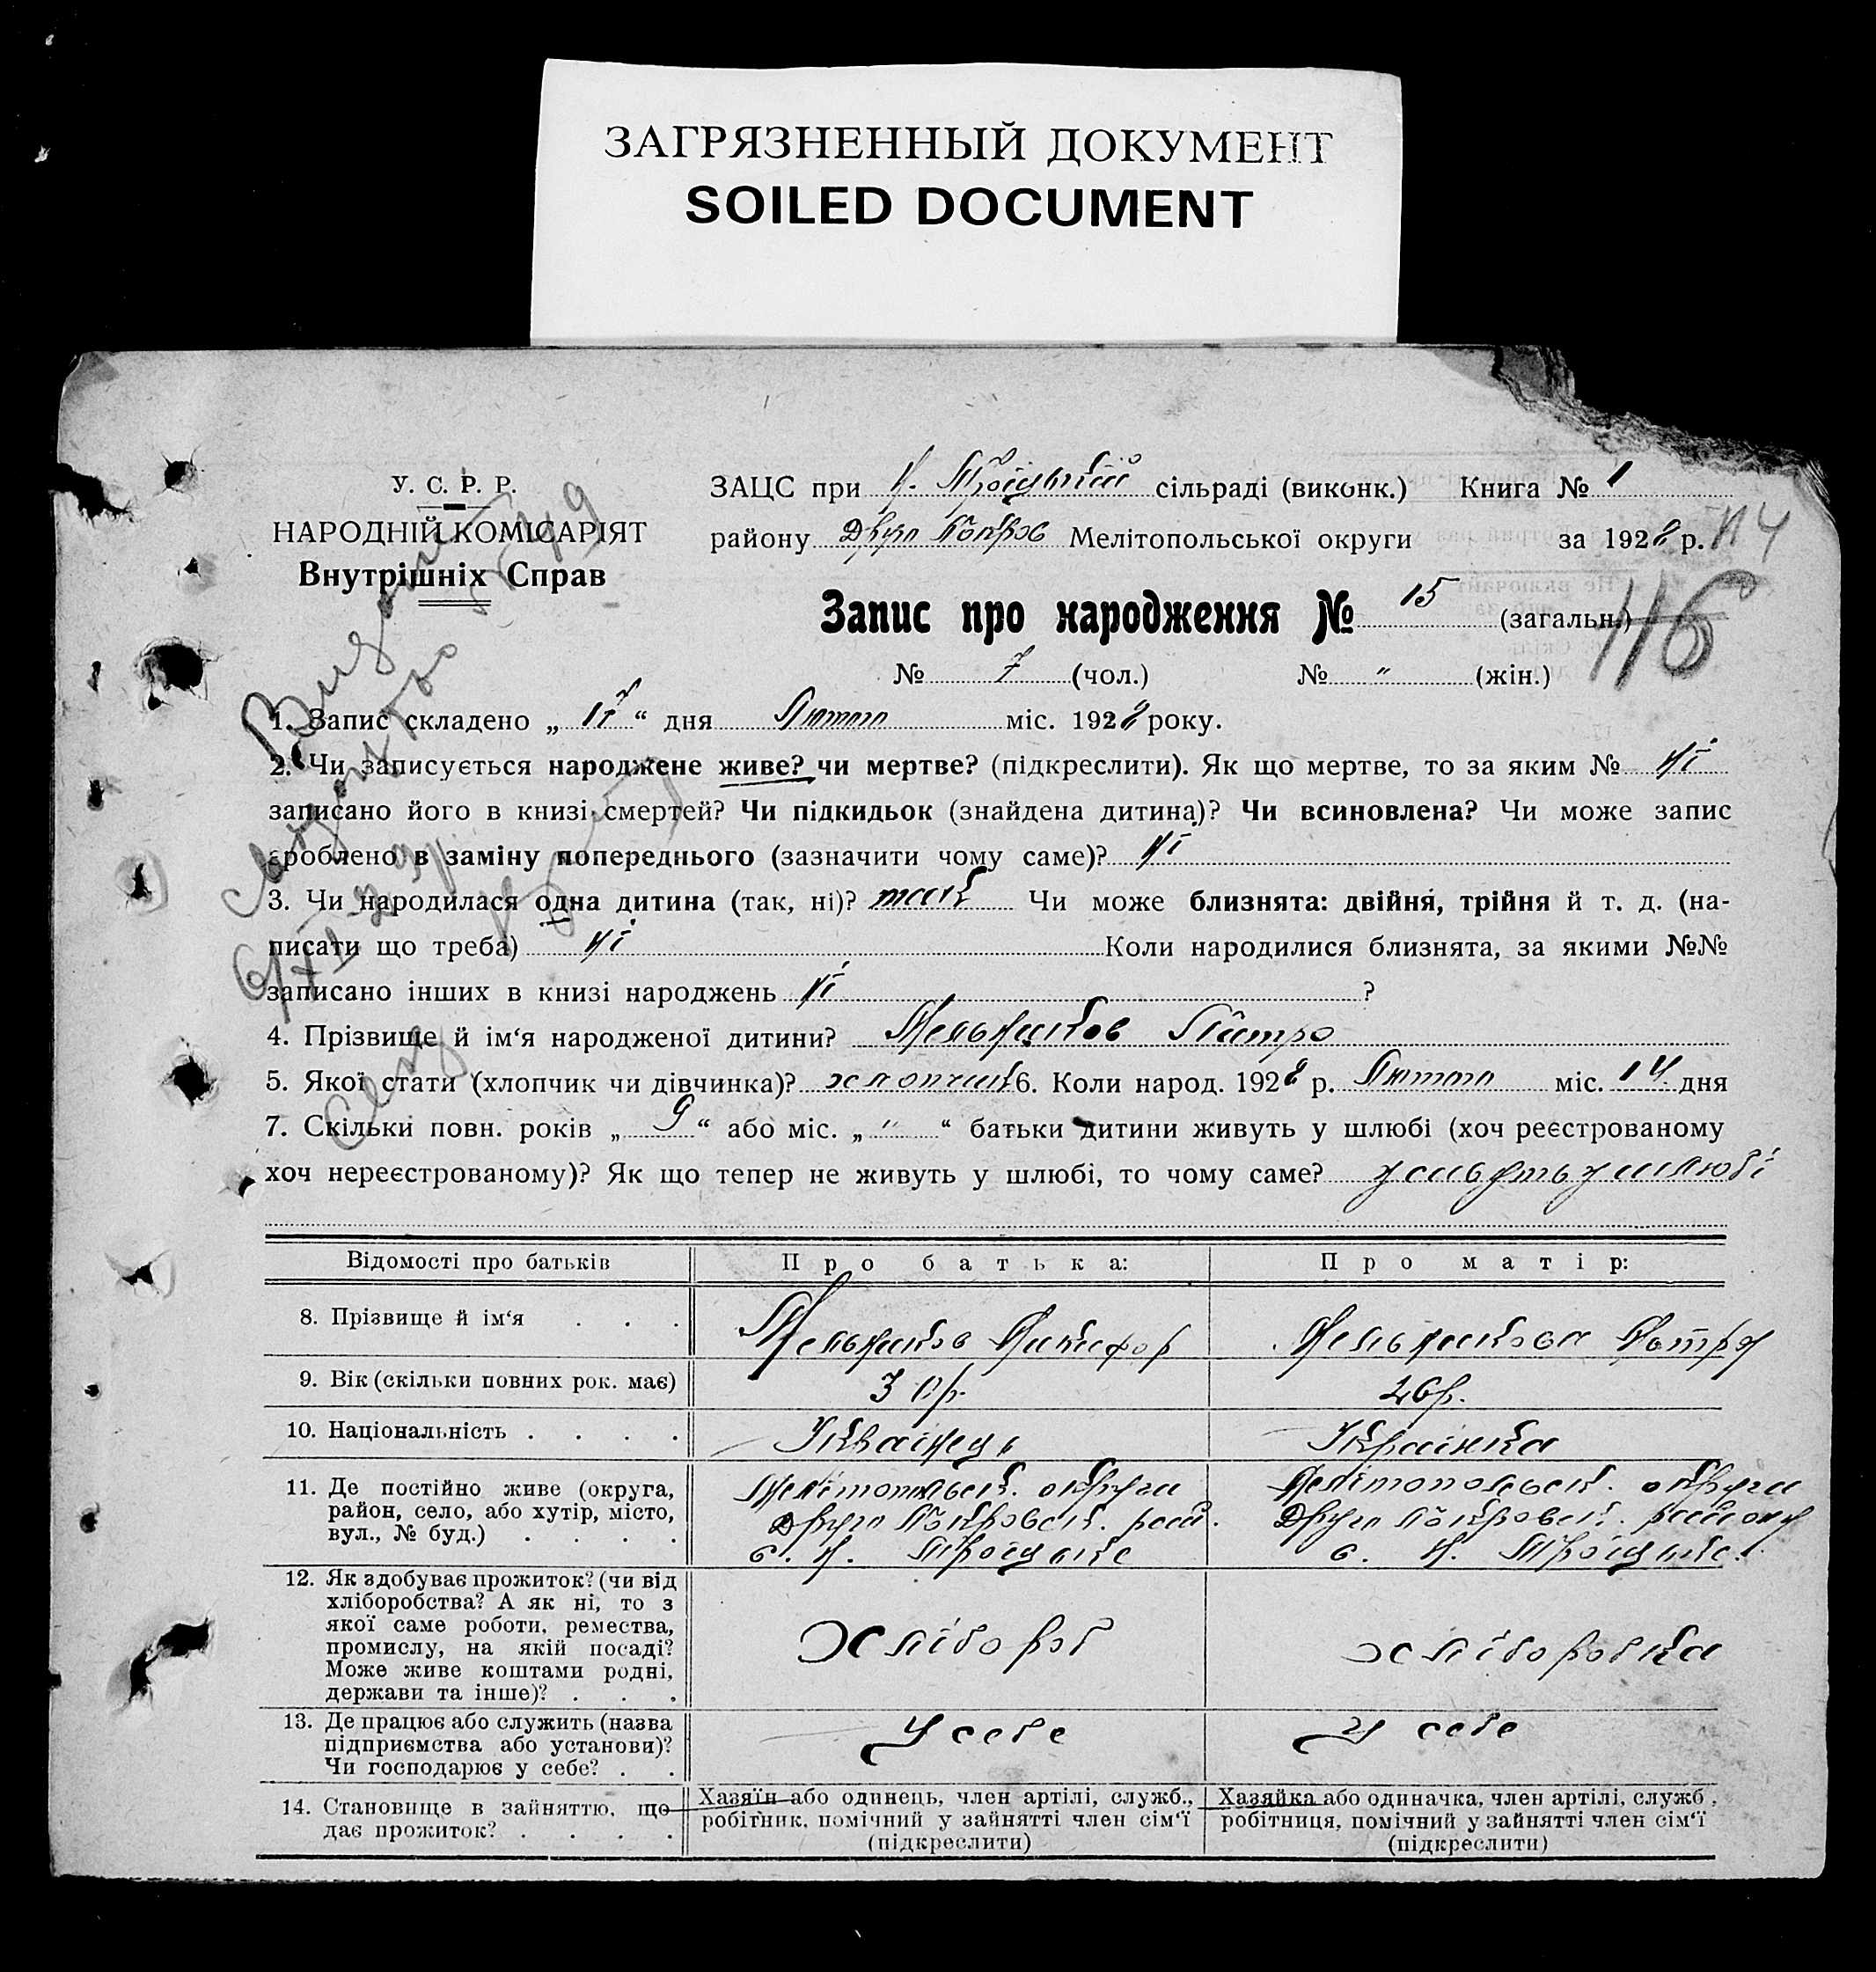 ЗАГРЯЗНЕННЫЙ ДОКУМЕНТ
SOILED DOCUMENT
У. С. Р. Р.
НАРОДНІЙ КОМІСАРІЯТ
Внутрішніх Справ
ЗАЦС при Н. Троїцькій сільраді (виконк.) Книга № 1
району Друго Покров Мелітопольської округи за 1928 р.
114
116
Запис про народження № 15 (загальн.)
№ 7 (чол.) № " (жін.)
1. Запис складено „ 17 “ дня Лютого міс. 1928 року.
2. Чи записується народжене живе? чи мертве? (підкреслити). Як що мертве, то за яким № ні
записано його в книзі смертей? Чи підкидьок (знайдена дитина)? Чи всиновлена? Чи може запис
зроблено в заміну попереднього (зазначити чому саме)? ні
3. Чи народилася одна дитина (так, ні)? так Чи може близнята: двійня, трійня й т. д. (на-
писати що треба) ні Коли народилися близнята, за якими №№
записано інших в книзі народжень ні ?
4. Прізвище й ім‘я народженої дитини? Мельников Пётро
5. Якої стати (хлопчик чи дівчинка)? хлопчик 6. Коли народ. 1928 р. Лютого міс. 14 дня
7. Скільки повн. років „ 9 “ або міс. „ " “ батьки дитини живуть у шлюбі (хоч реєстрованому
хоч нереєстрованому)? Як що тепер не живуть у шлюбі, то чому саме? у шлюбі
Відомості про батьків Про батька: Про матір:
8. Прізвище й ім‘я . . . Мельников Никифор Мельникова
9. Вік (скільки повних рок. має) 30 р. 26 р.
10. Національність . . . . Украінець Украінка
11. Де постійно живе (округа, Мелітопольск. округи Мелітопольськ. округи
район, село, або хутір, місто, Друго Покровськ. рай. Друго Покровськ. району
вул., № буд.) . . . . с. Н. Троїцьке с. Н. Троїцьке.
12. Як здобуває прожиток? (чи від
хліборобства? А як ні, то з
якої саме роботи, ремества, Хлібороб хліборобка
промислу, на якій посаді?
Може живе коштами родні,
держави та інше)? . . .
13. Де працює або служить (назва У себе У себе
підприємства або установи)?
Чи господарює у себе? . .
14. Становище в зайняттю, що Хазяїн або одинець, член артілі, служб., Хазяйка або одиначка, член артілі, служб.,
дає прожиток? . . . . робітник, помічний у зайнятті член сім‘ї робітниця, помічний у зайнятті член сім‘ї
(підкреслити) (підкреслити)